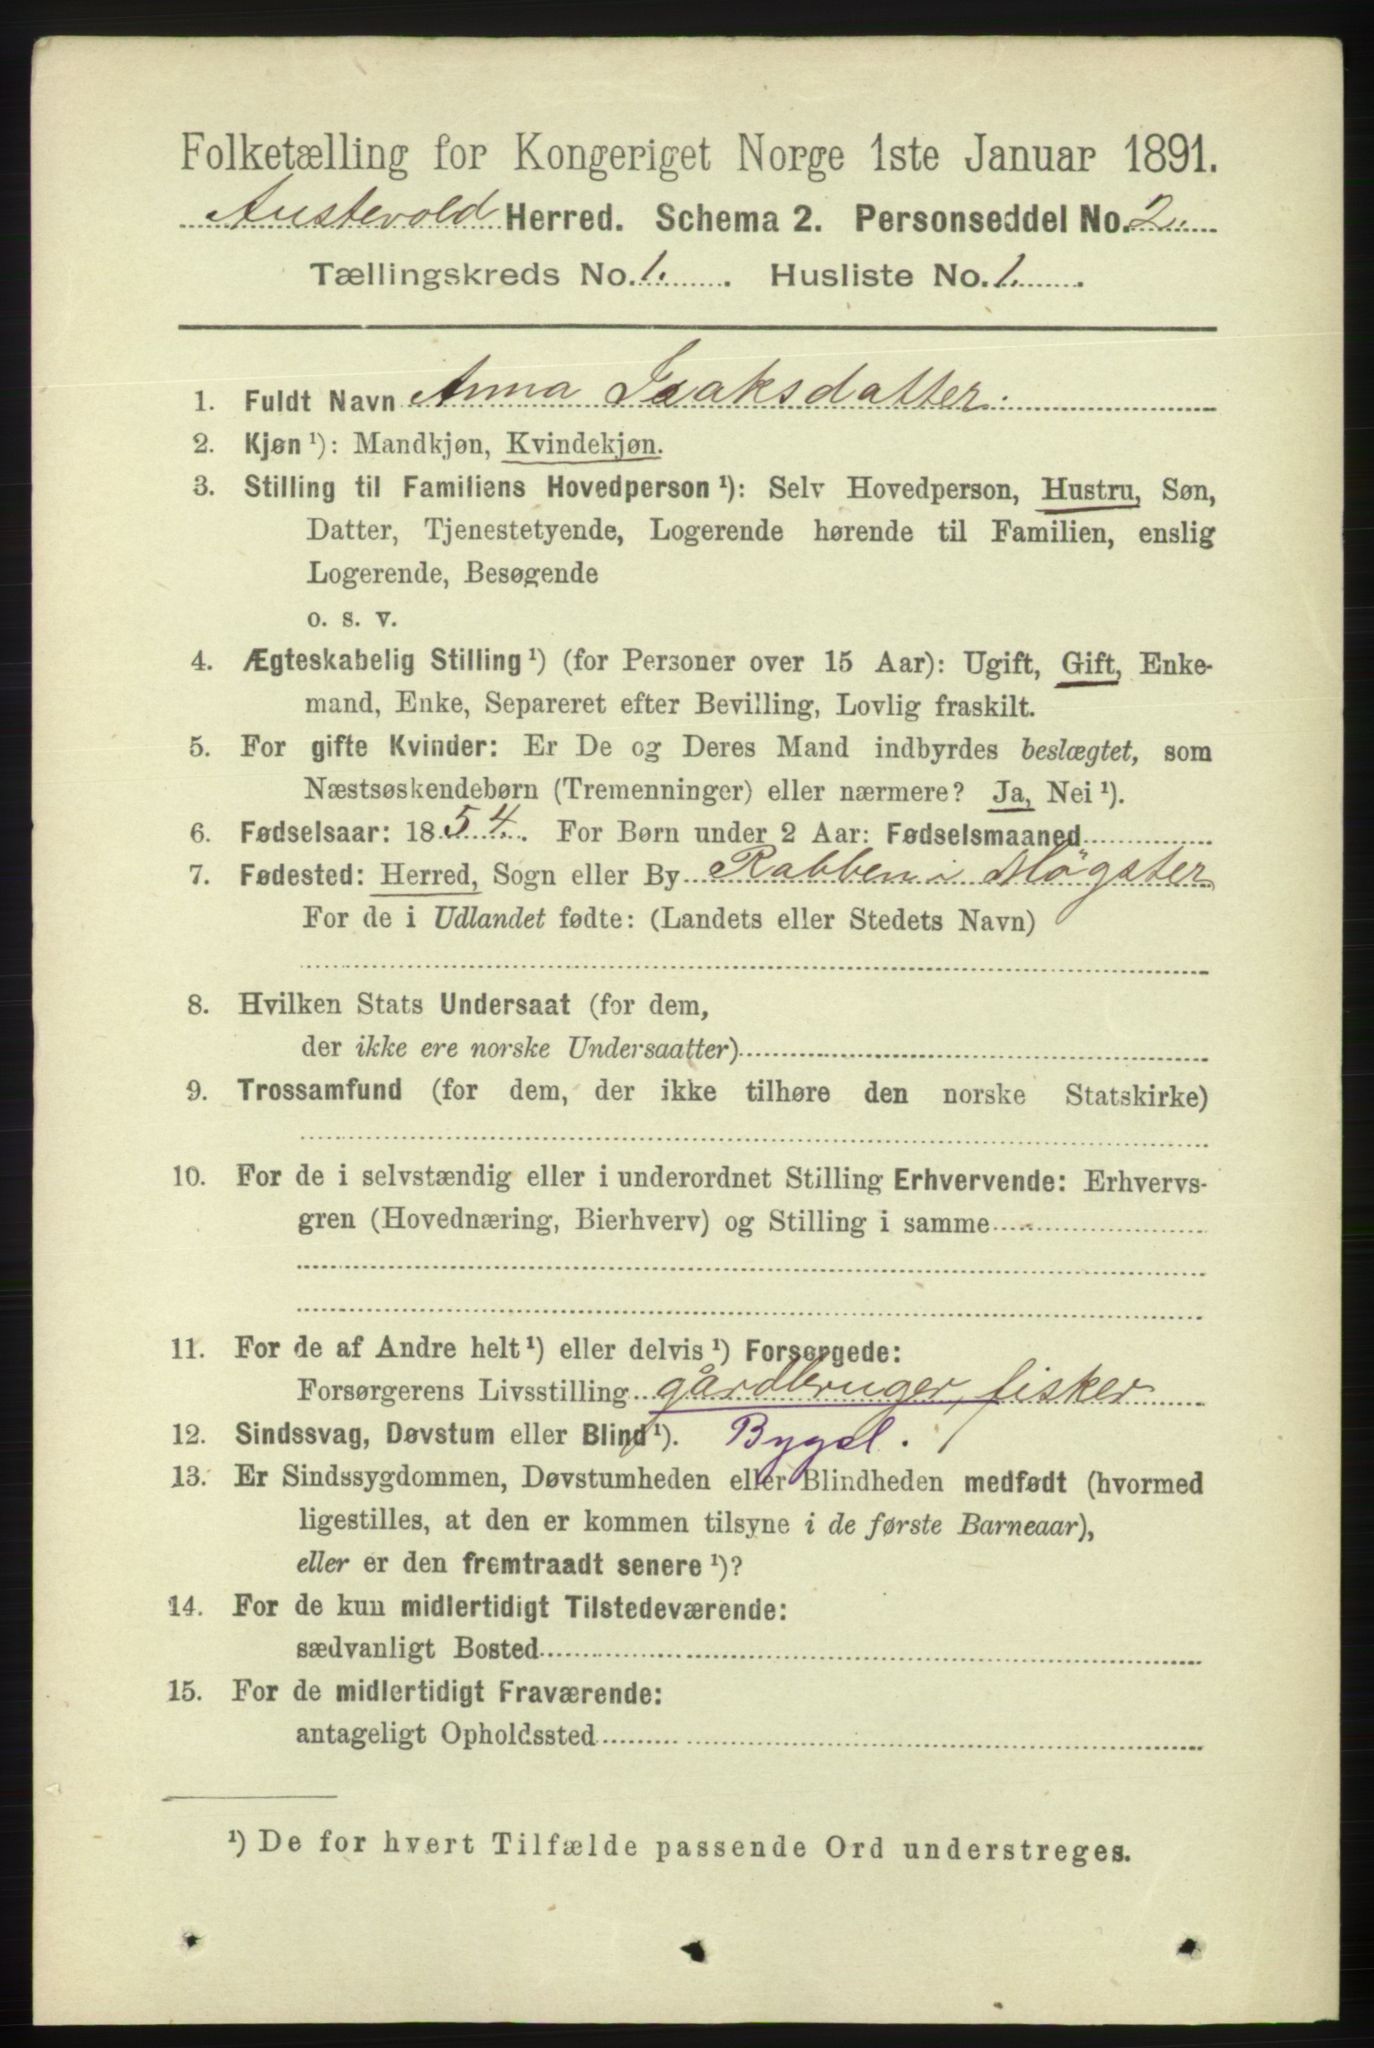 Folketælling for Kongeriget Norge 1ste Januar 1891.
Austevold Herred. Schema 2. Personseddel No. 2.
Tællingskreds No. 1. Husliste No. 1.
1. Fuldt Navn Anna Isaksdatter.
2. Kjøn ¹): Mandkjøn, Kvindekjøn.
3. Stilling til Familiens Hovedperson ¹): Selv Hovedperson, Hustru, Søn,
Datter, Tjenestetyende, Logerende hørende til Familien, enslig
Logerende, Besøgende
o. s. v.
4. Ægteskabelig Stilling ¹) (for Personer over 15 Aar): Ugift, Gift, Enke-
mand, Enke, Separeret efter Bevilling, Lovlig fraskilt.
5. For gifte Kvinder: Er De og Deres Mand indbyrdes beslægtet, som
Næstsøskendebørn (Tremenninger) eller nærmere? Ja, Nei ¹).
6. Fødselsaar: 1854. For Børn under 2 Aar: Fødselsmaaned
7. Fødested: Herred, Sogn eller By Rabben i Møgster
For de i Udlandet fødte: (Landets eller Stedets Navn)
8. Hvilken Stats Undersaat (for dem,
der ikke ere norske Undersaatter)
9. Trossamfund (for dem, der ikke tilhøre den norske Statskirke)
10. For de i selvstændig eller i underordnet Stilling Erhvervende: Erhvervs-
gren (Hovednæring, Bierhverv) og Stilling i samme
11. For de af Andre helt ¹) eller delvis ¹) Forsørgede:
Forsørgerens Livsstilling gårdbruger, fisker
12. Sindssvag, Døvstum eller Blind ¹). Bygsl.
13. Er Sindssygdommen, Døvstumheden eller Blindheden medfødt (hvormed
ligestilles, at den er kommen tilsyne i de første Barneaar),
eller er den fremtraadt senere ¹)?
14. For de kun midlertidigt Tilstedeværende:
sædvanligt Bosted
15. For de midlertidigt Fraværende:
antageligt Opholdssted
¹) De for hvert Tilfælde passende Ord understreges.